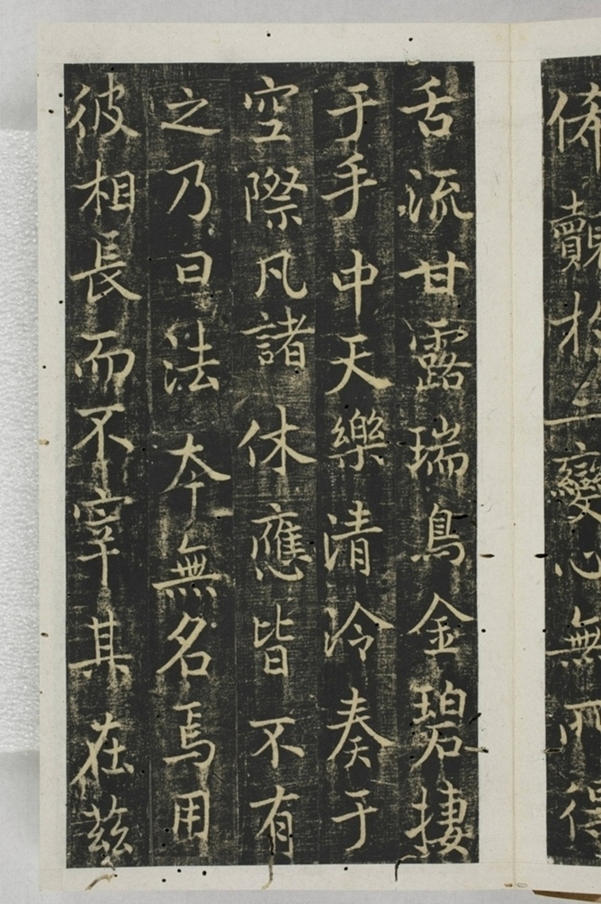 於一變心無所得
舌流甘露瑞鳥金碧捿
于手中天樂清冷奏于
空際凡諸休應皆不有
之乃曰法夲無名焉用
彼相長而不宰其在茲